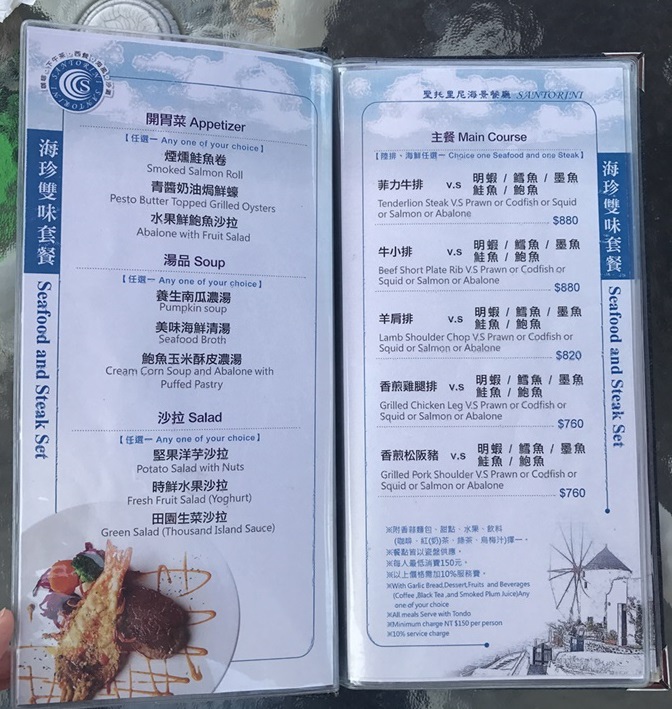 SANTORINI SANTORINI
海珍雙味套餐
Seafood and Steak Set
開胃菜 Appetizer
【任選一 Any one of your choice】
煙燻鮭魚卷
Smoked Salmon Roll
青醬奶油焗鮮蠔
Pesto Butter Topped Grilled Oysters
水果鮮鮑魚沙拉
Abalone with Fruit Salad
湯品 Soup
【任選一 Any one of your choice】
養生南瓜濃湯
Pumpkin soup
美味海鮮清湯
Seafood Broth
鮑魚玉米酥皮濃湯
Cream Corn Soup and Abalone with
Puffed Pastry
沙拉 Salad
【任選一 Any one of your choice】
堅果洋芋沙拉
Potato Salad with Nuts
時鮮水果沙拉
Fresh Fruit Salad (Yoghurt)
田園生菜沙拉
Green Salad (Thousand Island Sauce)
聖托里尼海景餐廳 SANTORINI
主餐 Main Course
【陸排、海鮮任選一 Choice one Seafood and one Steak】
菲力牛排 v.s 明蝦 / 鱈魚 / 墨魚
鮭魚 / 鮑魚
Tenderlion Steak V.S Prawn or Codfish or Squid
or Salmon or Abalone
$880
牛小排 v.s 明蝦 / 鱈魚 / 墨魚
鮭魚 / 鮑魚
Beef Short Plate Rib V.S Prawn or Codfish or
Squid or Salmon or Abalone
$880
羊肩排 v.s 明蝦 / 鱈魚 / 墨魚
鮭魚 / 鮑魚
Lamb Shoulder Chop V.S Prawn or Codfish or
Squid or Salmon or Abalone
$820
香煎雞腿排 v.s 明蝦 / 鱈魚 / 墨魚
鮭魚 / 鮑魚
Grilled Chicken Leg V.S Prawn or Codfish or
Squid or Salmon or Abalone
$760
香煎松阪豬 v.s 明蝦 / 鱈魚 / 墨魚
鮭魚 / 鮑魚
Grilled Pork Shoulder V.S Prawn or Codfish or
Squid or Salmon or Abalone
$760
※附香蒜麵包、甜點、水果、飲料
(咖啡、紅(奶)茶、綠茶、烏梅汁)擇一。
※餐點皆以瓷盤供應。
※每人最低消費150元。
※以上價格需加10%服務費。
※With Garlic Bread,Dessert,Fruits and Beverages
(Coffee ,Black Tea ,and Smoked Plum Juice)Any
one of your choice
※All meals Serve with Tondo
※Minimum charge NT $150 per person
※10% service charge
海珍雙味套餐
Seafood and Steak Set